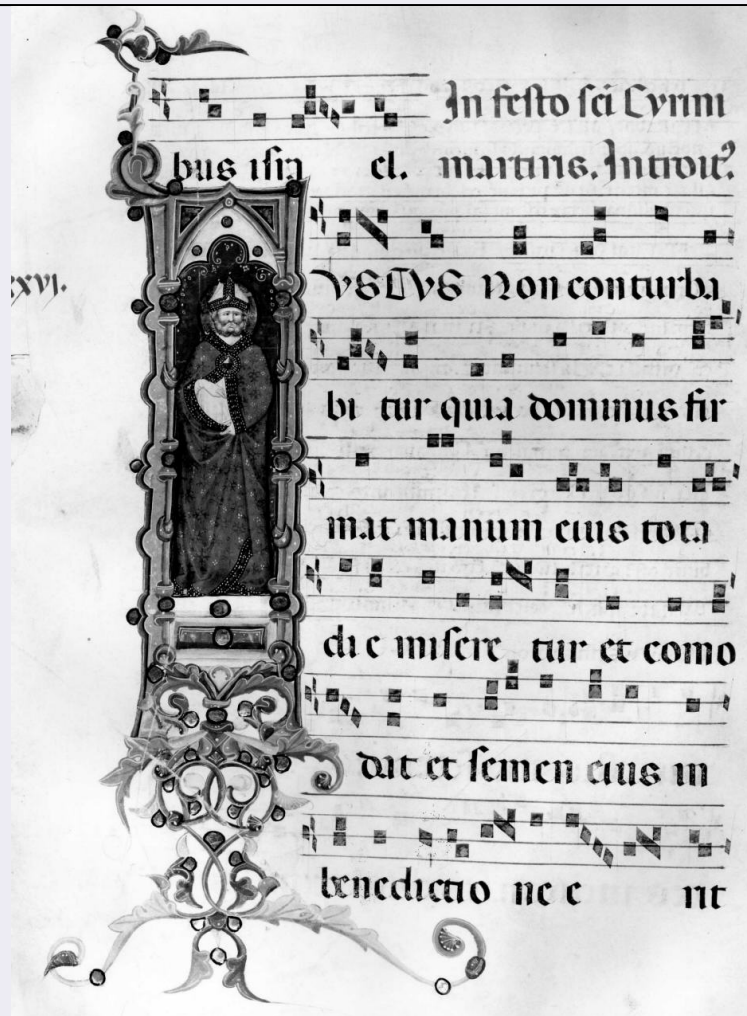 In festo sci Cyrini
bus isra el. martiris. Introit⁹.
xxvi.
VSTVS Non conturba
bi tur quia dominus fir
mat manum eius tota
di e misere tur et como
dat et semen eius in
benedictio ne e rit